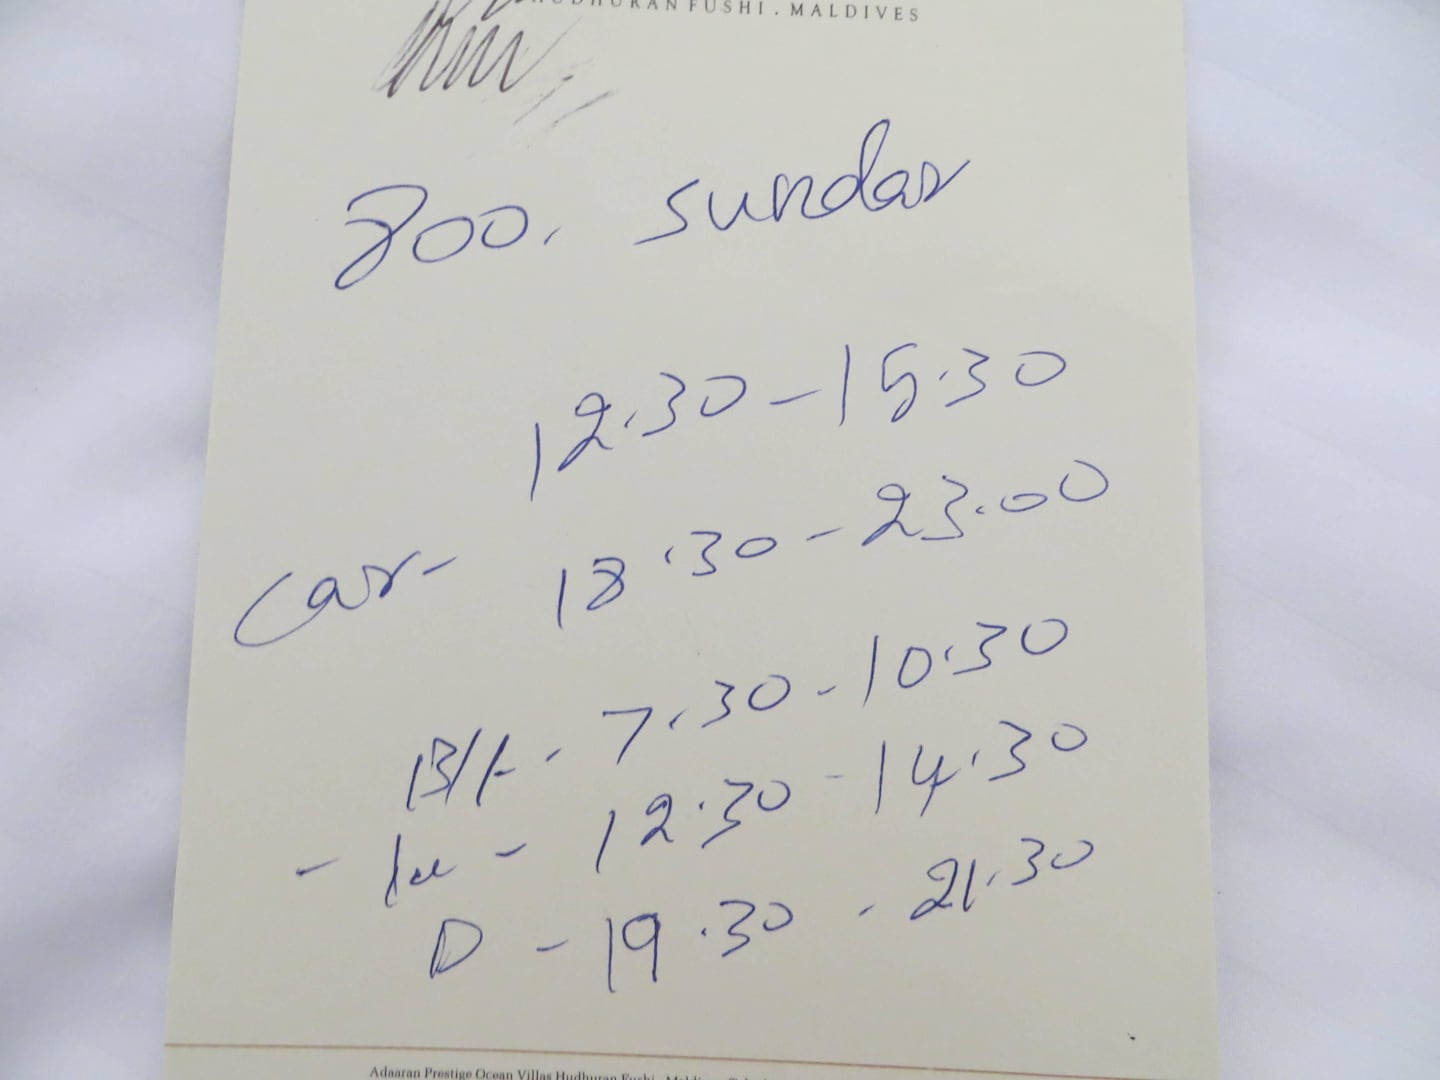 HUDHURAN FUSHI . MALDIVES
800, sundar
12.30 - 15.30
Car- 18.30 - 23.00
B/f - 7.30 - 10.30
- Lu - 12.30 - 14.30
D - 19.30 - 21.30
Adaaran Prestige Ocean Villas Hudhuran Fushi